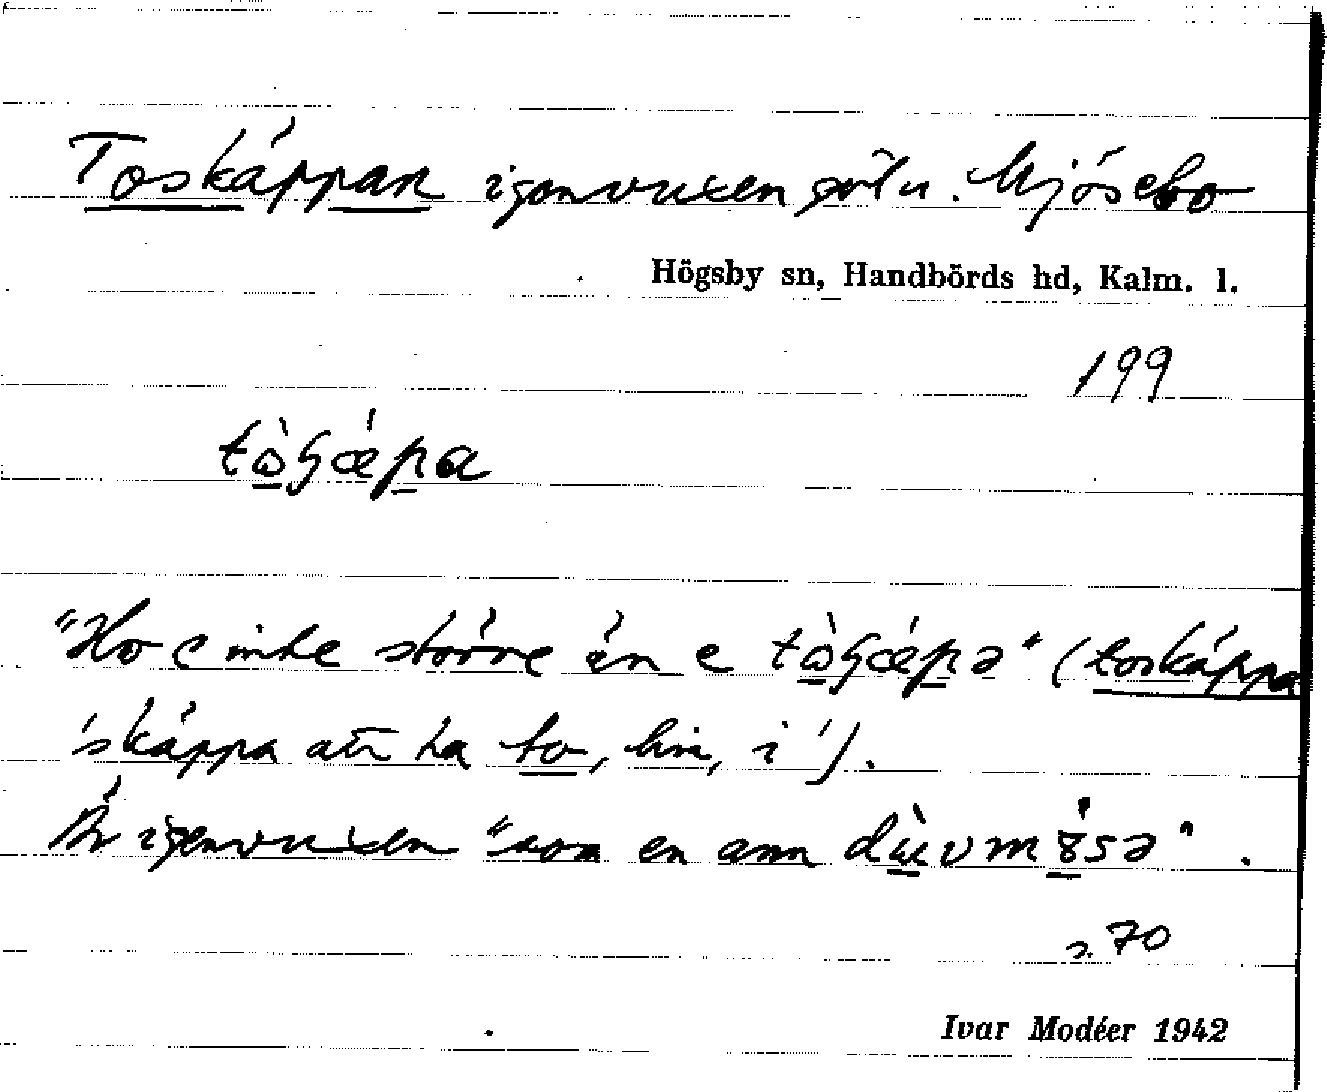 Toskäppan igenvuxen göl u. Mjösebo
Högsby sn, Handbörds hd, Kalm. l.
199
"Ho e inte större än e (toskäppa
'skäppa att ha to, lin, i').
Är igenvuxen "som en ann
s. 70
Ivar Modéer 1942